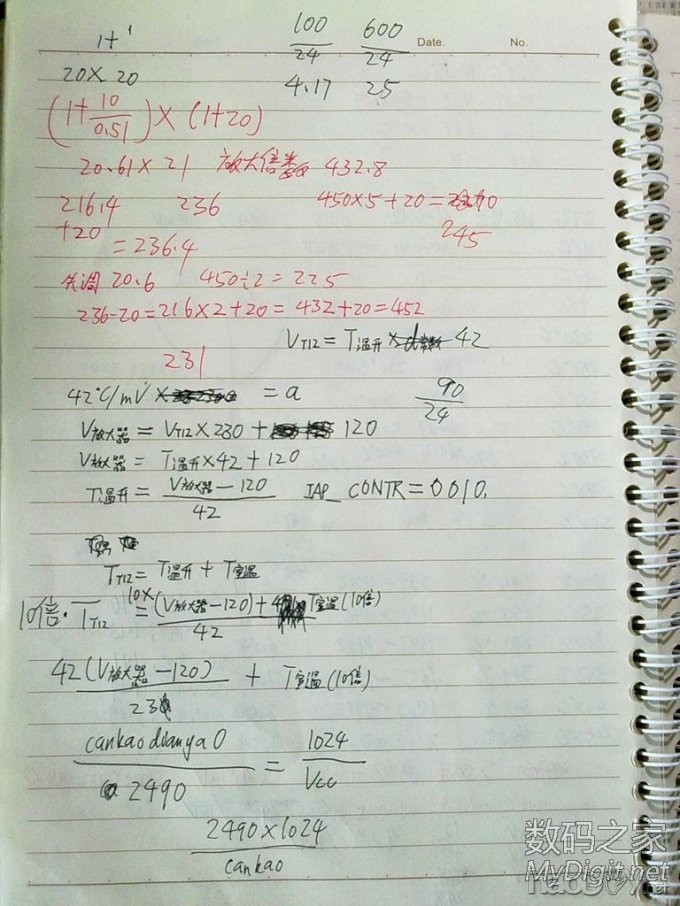 1+1 100/24 600/24 Date. No.
20×20 4.17 25
(1+10/0.51)×(1+20)
20.61×21 放大倍数 432.8
216.4 236 450×5+20=
+20 =236.4 245
失调20.6 450÷2=225
236-20=216×2+20=432+20=452
231 VT12=T温升×42
42℃/mV =a 90/24
V放大器=VT12×230+120
V放大器=T温升×42+120
T温升=(V放大器-120)/42 IAP_CONTR=0010.
TT12=T温升+T室温
10倍·TT12=10×(V放大器-120)+T室温(10倍)/42
42(V放大器-120)/23 + T室温(10倍)
cankaodianya0/2490=1024/Vcc
2490×1024/cankao
数码之家
MyDigit.net